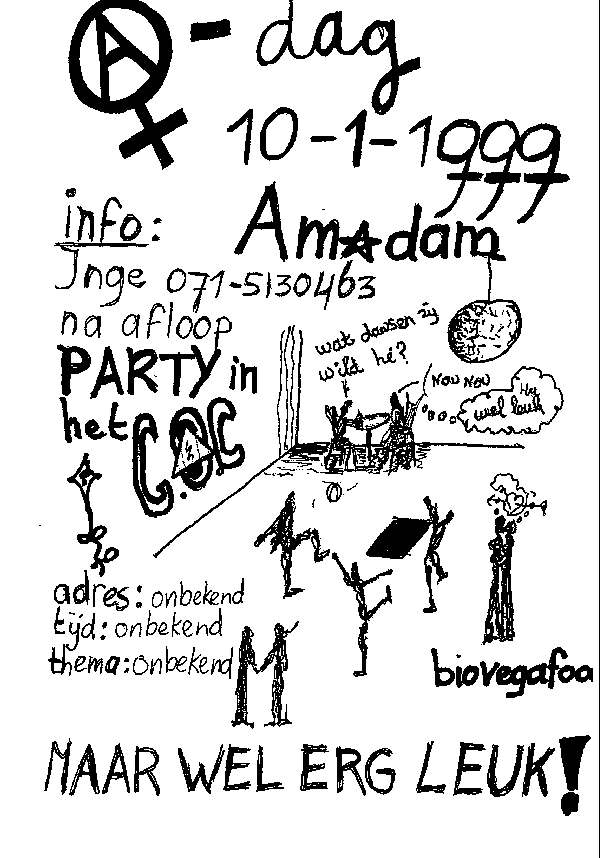 A - dag
10-1-1999
Amsdam
info:
Inge 071-5130463
na afloop
PARTY in
het C.O.C
wat dansen zij
wild hé?
NOU NOU
Hij
wel leuk
adres: onbekend
tijd: onbekend
thema: onbekend
biovegafoa
MAAR WEL ERG LEUK!